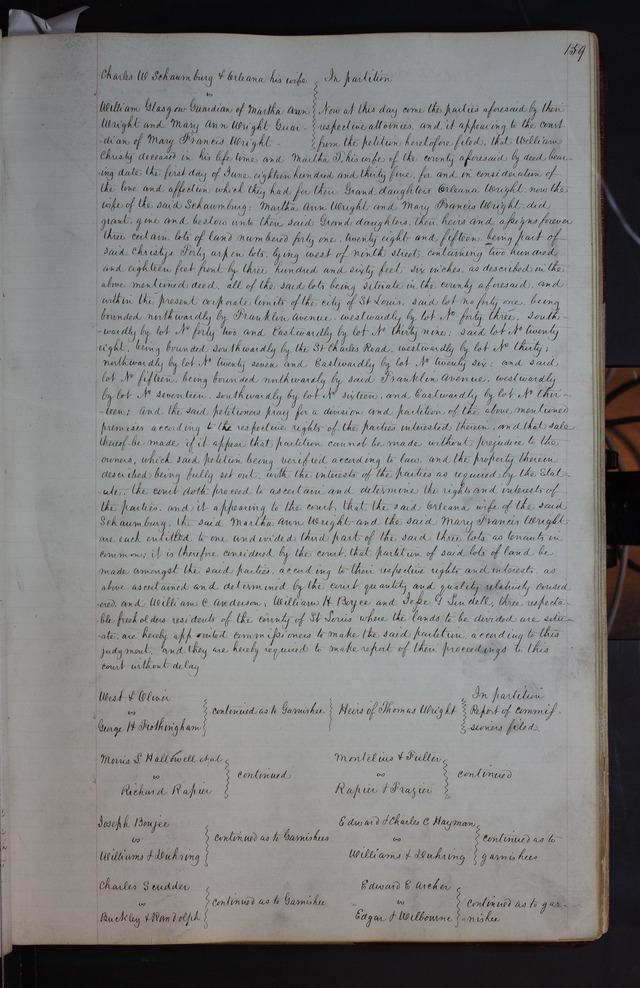 159
Charles W Schaumburg & Orleana his wife } In partition
vs
William Glasgow Guardian of Martha Ann } Now at this day come the parties aforesaid by their
Wright and Mary Ann Wright Guar- } respective attornies, and it appearing to the court
dian of Mary Francis Wright - } from the petition heretofore filed, that William
Christy deceased in his life time and Martha T. his wife of the county aforesaid by deed bear-
ing date the first day of June eighteen hundred and thirty five, for and in consideration of
the love and affection which they had for their Grand daughters Orleana Wright, now the
wife of the said Schaumburg, Martha Ann Wright and Mary Francis Wright, did
grant, give and bestow unto their said Grand daughters, their heirs and assigns forever
three certain lots of land numbered forty one, twenty eight and fifteen, being part of
said Christys Forty arpen lots, lying west of ninth street, containing two hundred
and eighteen feet front by three hundred and sixty feet six inches, as described in the
above mentioned deed, all of the said lots being situate in the county aforesaid, and
within the present corporate limits of the city of St Louis, said lot no forty one, being
bounded northwardly by Franklin Avenue, westwardly by lot No forty three, south-
-wardly by lot No forty two and Eastwardly by lot No thirty nine; said lot No twenty
eight, being bounded southwardly by the St Charles Road, westwardly by lot No thirty;
northwardly by lot No twenty seven and Eastwardly by lot No twenty six; and said
lot No fifteen, being bounded northwardly by said Franklin Avenue, westwardly
by lot No seventeen, southwardly by lot No sixteen, and Eastwardly by lot No thir-
-teen; and the said petitioners pray for a division and partition of the above mentioned
premises according to the respective rights of the parties interested therein, and that sale
thereof be made if it appear that partition cannot be made without prejudice to the
owners, which said petition being verified according to law and the property therein
described being fully set out, with the interests of the parties as required by the Stat-
-ute, the court doth proceed to ascertain and determine the rights and interests of
the parties, and it appearing to the court, that the said Orleana wife of the said
Schaumburg, the said Martha Ann Wright and the said Mary Francis Wright
are each entitled to one undivided third part of the said three lots as tenants in
common; it is therefore considered by the court, that partition of said lots of land be
made amongst the said parties, according to their respective rights and interests, as
above ascertained and determined by the court quantity and quality relatively consid
ered and William C Anderson, William H Boyce and Jesse G Lindell, three respecta-
ble freeholders residents of the county of St Louis where the lands to be divided are situ-
ate, are hereby appointed commissioners to make the said partition according to this
judgment, and they are hereby required to make report of their proceedings to this
court without delay
West & Oliver
vs } continued as to Garnishee
George H Frothingham
Heirs of Thomas Wright } In partition
Report of commis-
sioners filed
Morris L Hallowell et al
vs } continued
Richard Rapier
Montelius & Fuller
vs } continued
Rapier & Frazier
Joseph Boujee
vs } continued as to Garnishees
Williams & Duhring
Edward & Charles C Hayman
vs } continued as to
Williams & Duhring } garnishees
Charles Scudder
vs } continued as to Garnishee
Buckley & Randolph
Edward E Archer
vs } continued as to gar-
Edgar & Wilbourne } -nishee